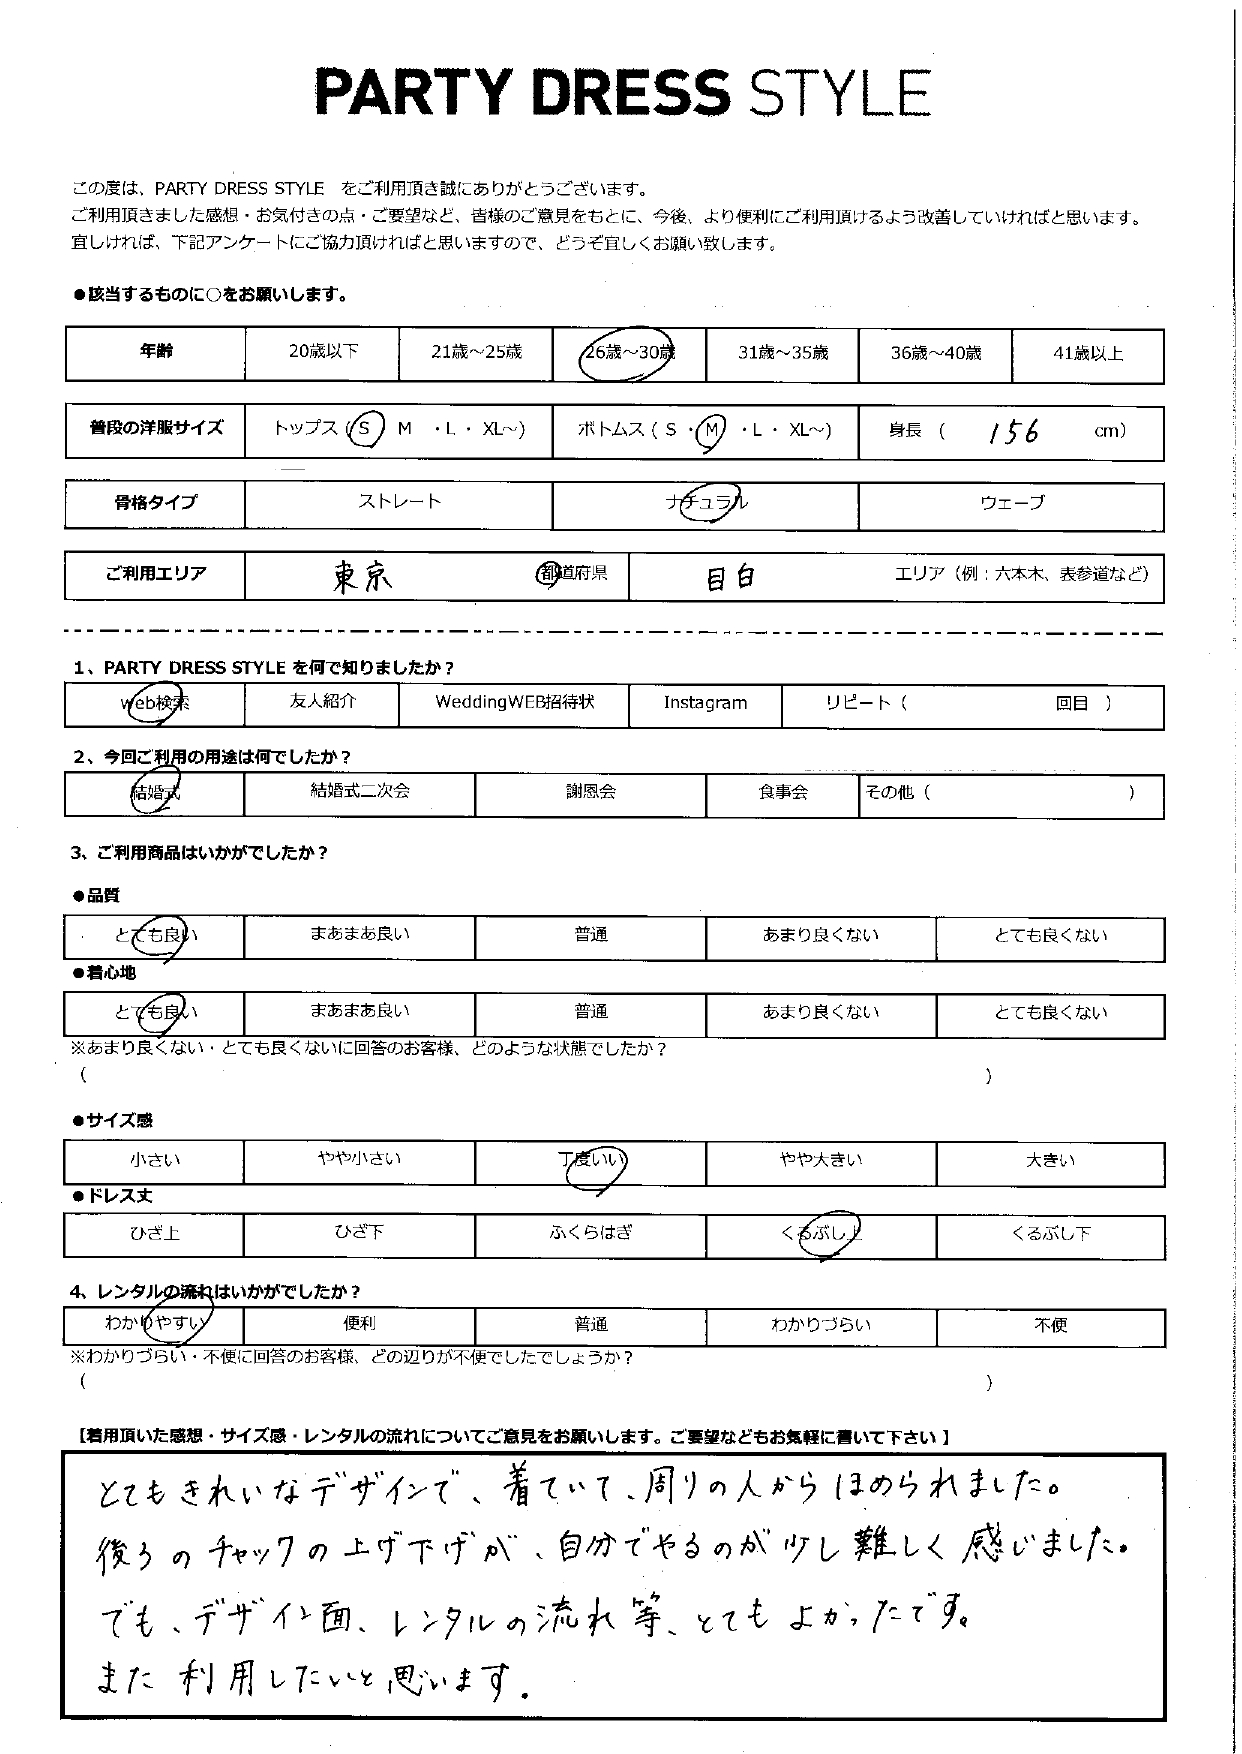 PARTY DRESS STYLE
この度は、PARTY DRESS STYLE をご利用頂き誠にありがとうございます。
ご利用頂きました感想・お気付きの点・ご要望など、皆様のご意見をもとに、今後、より便利にご利用頂けるよう改善していければと思います。
宜しければ、下記アンケートにご協力頂ければと思いますので、どうぞ宜しくお願い致します。
●該当するものに○をお願いします。
年齢 20歳以下 21歳～25歳 26歳～30歳 31歳～35歳 36歳～40歳 41歳以上
普段の洋服サイズ トップス ( S M ・L ・ XL～) ボトムス ( S ・ M ・L ・ XL～) 身長 ( 156 cm)
骨格タイプ ストレート ナチュラル ウェーブ
ご利用エリア 東京 都道府県 目白 エリア（例：六本木、表参道など）
1、PARTY DRESS STYLE を何で知りましたか？
web検索 友人紹介 WeddingWEB招待状 Instagram リピート（ 回目 ）
2、今回ご利用の用途は何でしたか？
結婚式 結婚式二次会 謝恩会 食事会 その他（ ）
3、ご利用商品はいかがでしたか？
●品質
とても良い まあまあ良い 普通 あまり良くない とても良くない
●着心地
とても良い まあまあ良い 普通 あまり良くない とても良くない
※あまり良くない・とても良くないに回答のお客様、どのような状態でしたか？
（ ）
●サイズ感
小さい やや小さい 丁度いい やや大きい 大きい
●ドレス丈
ひざ上 ひざ下 ふくらはぎ くるぶし上 くるぶし下
4、レンタルの流れはいかがでしたか？
わかりやすい 便利 普通 わかりづらい 不便
※わかりづらい・不便に回答のお客様、どの辺りが不便でしたでしょうか？
（ ）
【着用頂いた感想・サイズ感・レンタルの流れについてご意見をお願いします。ご要望などもお気軽に書いて下さい 】
とてもきれいなデザインで、着ていて、周りの人からほめられました。
後ろのチャックの上げ下げが、自分でやるのが少し難しく感じました。
でも、デザイン面、レンタルの流れ等、とてもよかったです。
また利用したいと思います.